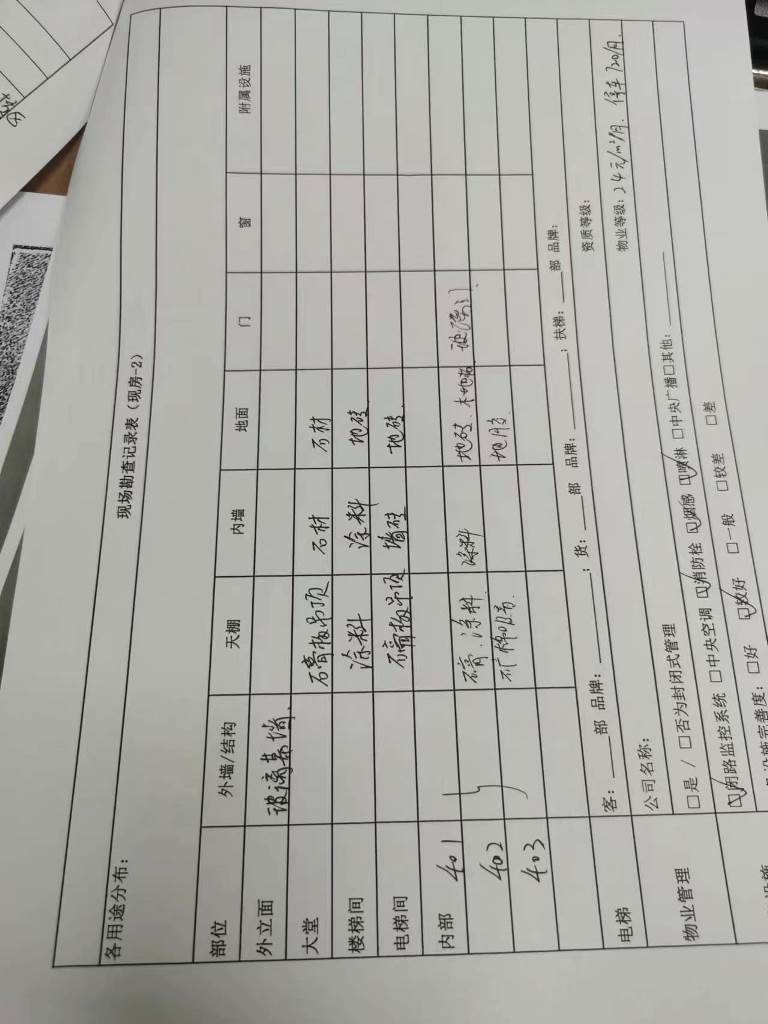 现场勘查记录表（现房-2）
各用途分布：
部位 外墙/结构 天棚 内墙 地面 门 窗 附属设施
外立面 玻璃幕墙
大堂 石膏板吊顶 石材 石材
楼梯间 涂料 涂料 地砖
电梯间 石膏板吊顶 墙砖 地砖
内部 401 石膏、涂料 涂料 地砖、木地板 玻璃门
402 矿棉吸音 地胶
403
电梯 客：____部 品牌：________；货：____部 品牌：________；扶梯：____部 品牌：
物业管理 公司名称： 资质等级：
□是 / □否为封闭式管理 物业等级：24元/m²/月、停车120/月
☑闭路监控系统 □中央空调 ☑消防栓 ☑烟感 ☑喷淋 □中央广播 □其他：________
设施完善度： □好 ☑较好 □一般 □较差 □差